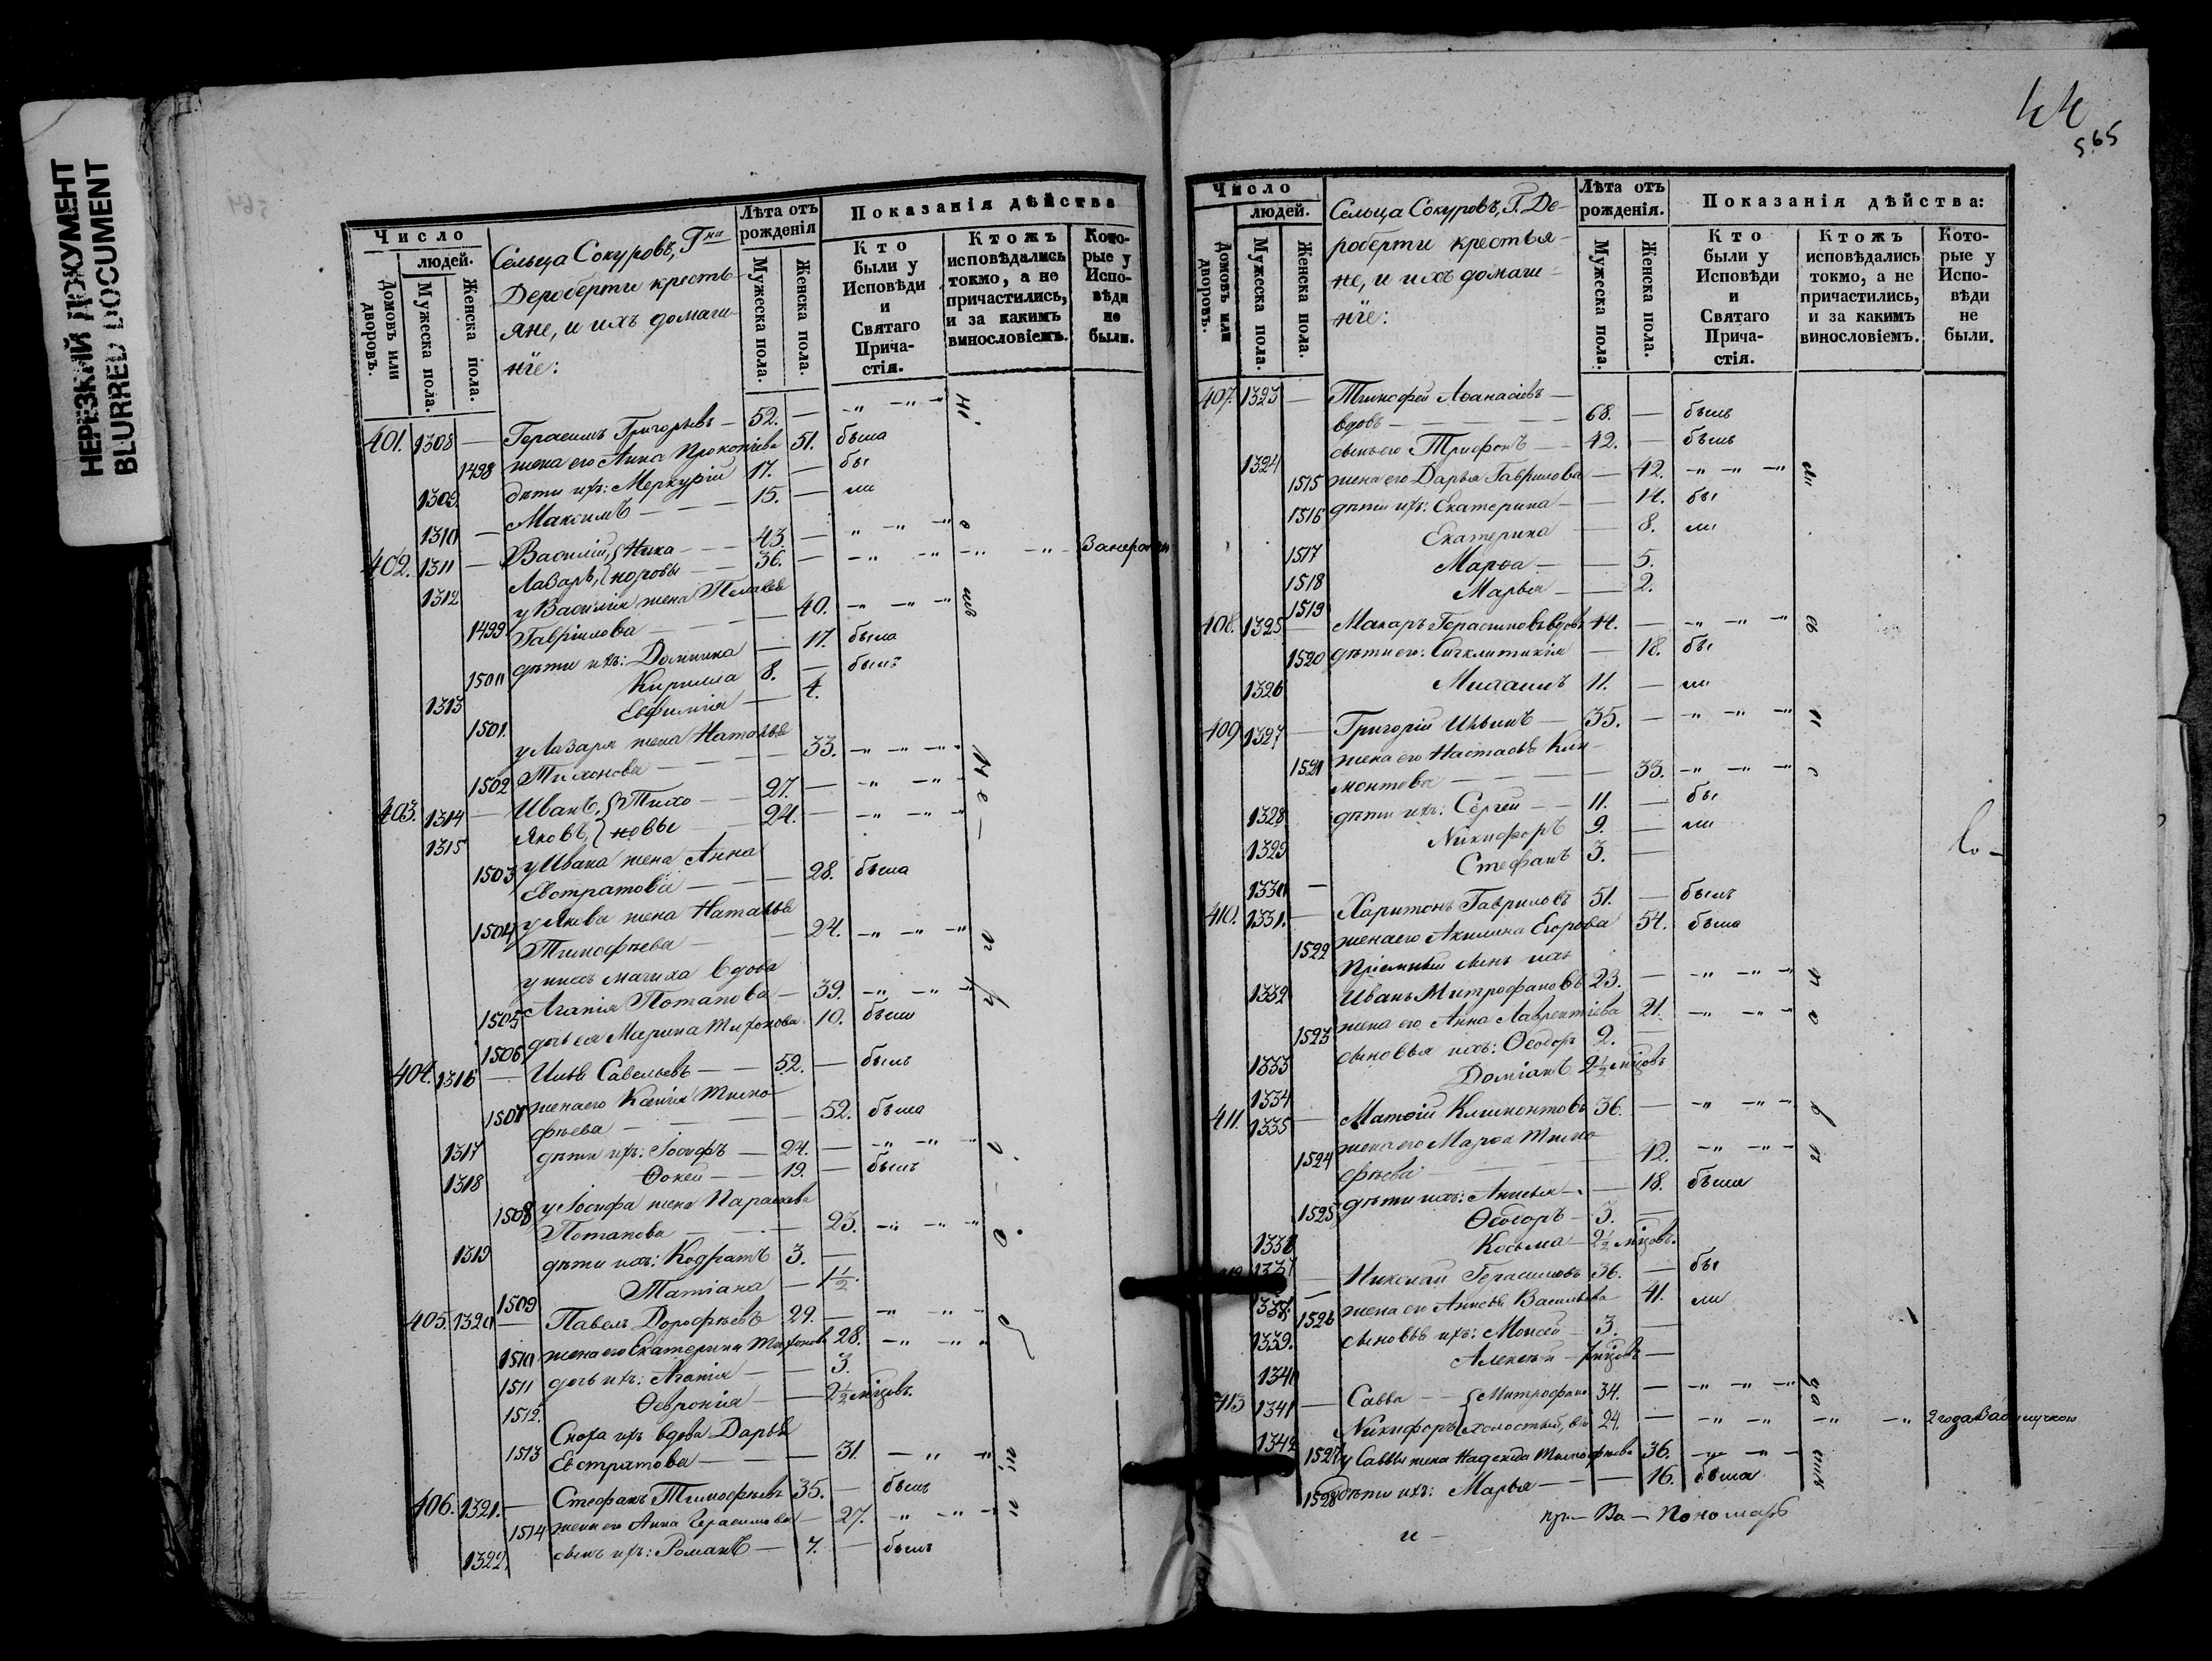 НЕРЕЗКИЙ ДОКУМЕНТ
BLURRED DOCUMENT
Число
людей.
Домовъ или дворовъ.
Мужеска пола.
Женска пола.
Сельца Сокуровъ, Г-на
Дероберти кресть-
яне, и ихъ домаш-
нiе:
Лѣта отъ
рожденiя
Мужеска пола.
Женска пола.
Показанiя дѣйства
Кто
были у
Исповѣди
и
Святаго
Прича-
стiя.
Ктожъ
исповѣдались
токмо, а не
причастились,
и за какимъ
винословiемъ.
Кото-
рые у
Испо-
вѣди
не
были.
401. 1308 — Герасимъ Григорьевъ — 52. — -"- -"-
1498 жена его Анна Прокопiева 51. была
1309. дѣти ихъ: Меркурiй 17. — бы
1310 — Максимъ — 15. — ли
402. 1311 — Василiй, Ника — 43. — " -"- -"
1312 Лазарь, норовы — 36. — -"- -"- -"- -"-
у Василiя жена Пелагея
1499 Гаврiилова — 40. -"- -"- -"
1500 дѣти ихъ: Домника — 17. была
1313 Кирилла 8. — былъ
1501. Евфимiя — 4.
у Лазаря жена Наталья
1502 Тихонова — 33. -"- -"- -"
403. 1314 — Иванъ, Тихо — 27. — -"- -"-
1315 Яковъ, новы — 24. — -"- -"- -"
1503 у Ивана жена Анна
Евстратова — 28. была
1504 у Якова жена Наталья
Тимофѣева — 24. -"- -"- -"
у нихъ мачиха вдова
1505 Агапiя Потапова — 39. -"- -"- "
1506 дочь ея Марина Тихонова 10. была
404. 1316 — Илья Савельевъ — 52. — былъ
1507 жена его Ксенiя Тимо-
фѣева — 52. была
1317 дѣти ихъ: Iосифъ — 24. — -"- -"- -"
1318 Ѳокей — 19. — былъ
1508 у Iосифа жена Параскева
Потапова — 23. -"- -"- -"
1319 дѣти ихъ: Кодратъ 3. —
1509 Татiана — 1½.
405. 1320 — Павелъ Дорофѣевъ 29. — -"- -"- "
1510 жена его Екатерина Тихонова 28. -"- -"- "
1511 дочь ихъ: Агапiя — 3.
1512. Ѳеврониiя — 2½ мѣцовъ.
Сноха ихъ вдова Дарья
1513 Евстратова — 31. — " -"
406. 1321. — Стефанъ Тимофѣевъ 35. — былъ
1514 жена его Анна Герасимова — 27. -"- -"-
1322. сынъ ихъ: Романъ — 7. — былъ
44
565
Число
людей.
Домовъ или дворовъ.
Мужеска пола.
Женска пола.
Сельца Сокуровъ, Г. Де-
роберти крестья-
не, и ихъ домаш-
нiе:
Лѣта отъ
рожденiя.
Мужеска пола.
Женска пола.
Показанiя дѣйства:
Кто
были у
Исповѣди
и
Святаго
Прича-
стiя.
Ктожъ
исповѣдались
токмо, а не
причастились,
и за какимъ
винословiемъ.
Кото-
рые у
Испо-
вѣди
не
были.
407. 1323 — Тимофей Аѳанасiевъ —
вдовъ — 68. — былъ
1324 сынъ его Трифонъ — 42. — былъ
1515 жена его Дарья Гаврилова — 42. -"- -"- -"
1516 дѣти ихъ: Екатерина — 14. бы
1517 Екатерина — 8. ли
1518 Марѳа — 5.
1519 Марья — 2.
408. 1325 — Макаръ Герасимовъ вдовъ 44. — -"- -"- -"
1520 дѣти его: Сигклитикiя — 18. бы
1326 Михаилъ 11. — ли
409 1327 — Григорiй Ильинъ — 35. — -"- -"- -"
1521 жена его Настасья Кли-
монтова — 33. -"- -"- -"
1328 дѣти ихъ: Сергей — 11. — бы
1329 Никифоръ 9. — ли
1330 — Стефанъ 3. —
410. 1331. — Харитонъ Гавриловъ 51. — былъ
1522 жена его Акилина Егорова 54. была
Прiемный сынъ ихъ
1332 Иванъ Митрофановъ 23. — -"- -"- -"
1523 жена его Анна Лаврентiева 21. -"- -"- "
1333 сыновья ихъ: Ѳеодоръ 2. —
1334 Домiанъ 2½ мѣцовъ
411. 1335 — Матѳiй Климонтовъ 36. — -"- -"-
1524 жена его Марѳа Тимо-
фѣева — 42. -"- -"-
1525 дѣти ихъ: Анисья — 18. была
1336 Ѳеодоръ — 3. —
1337 Косьма — 2½ мѣцовъ.
1338. — Николай Герасимовъ 36. — бы
1526 жена его Анисья Васильева 41. ли
1339. сыновья ихъ: Моисей — 3. —
1340 Алексѣй — мѣцовъ —
413 1341 — Савва — Митрофано 34. — -"- -"- -"
1342 Никифоръ холостый, вы 24. — -"- -"- -"- -"- 2 года
1527 у Саввы жена Надежда Тимофѣева 36. -"- -"-
1528 дѣти ихъ: Марья — 16. была
Со —
и — Пономарь